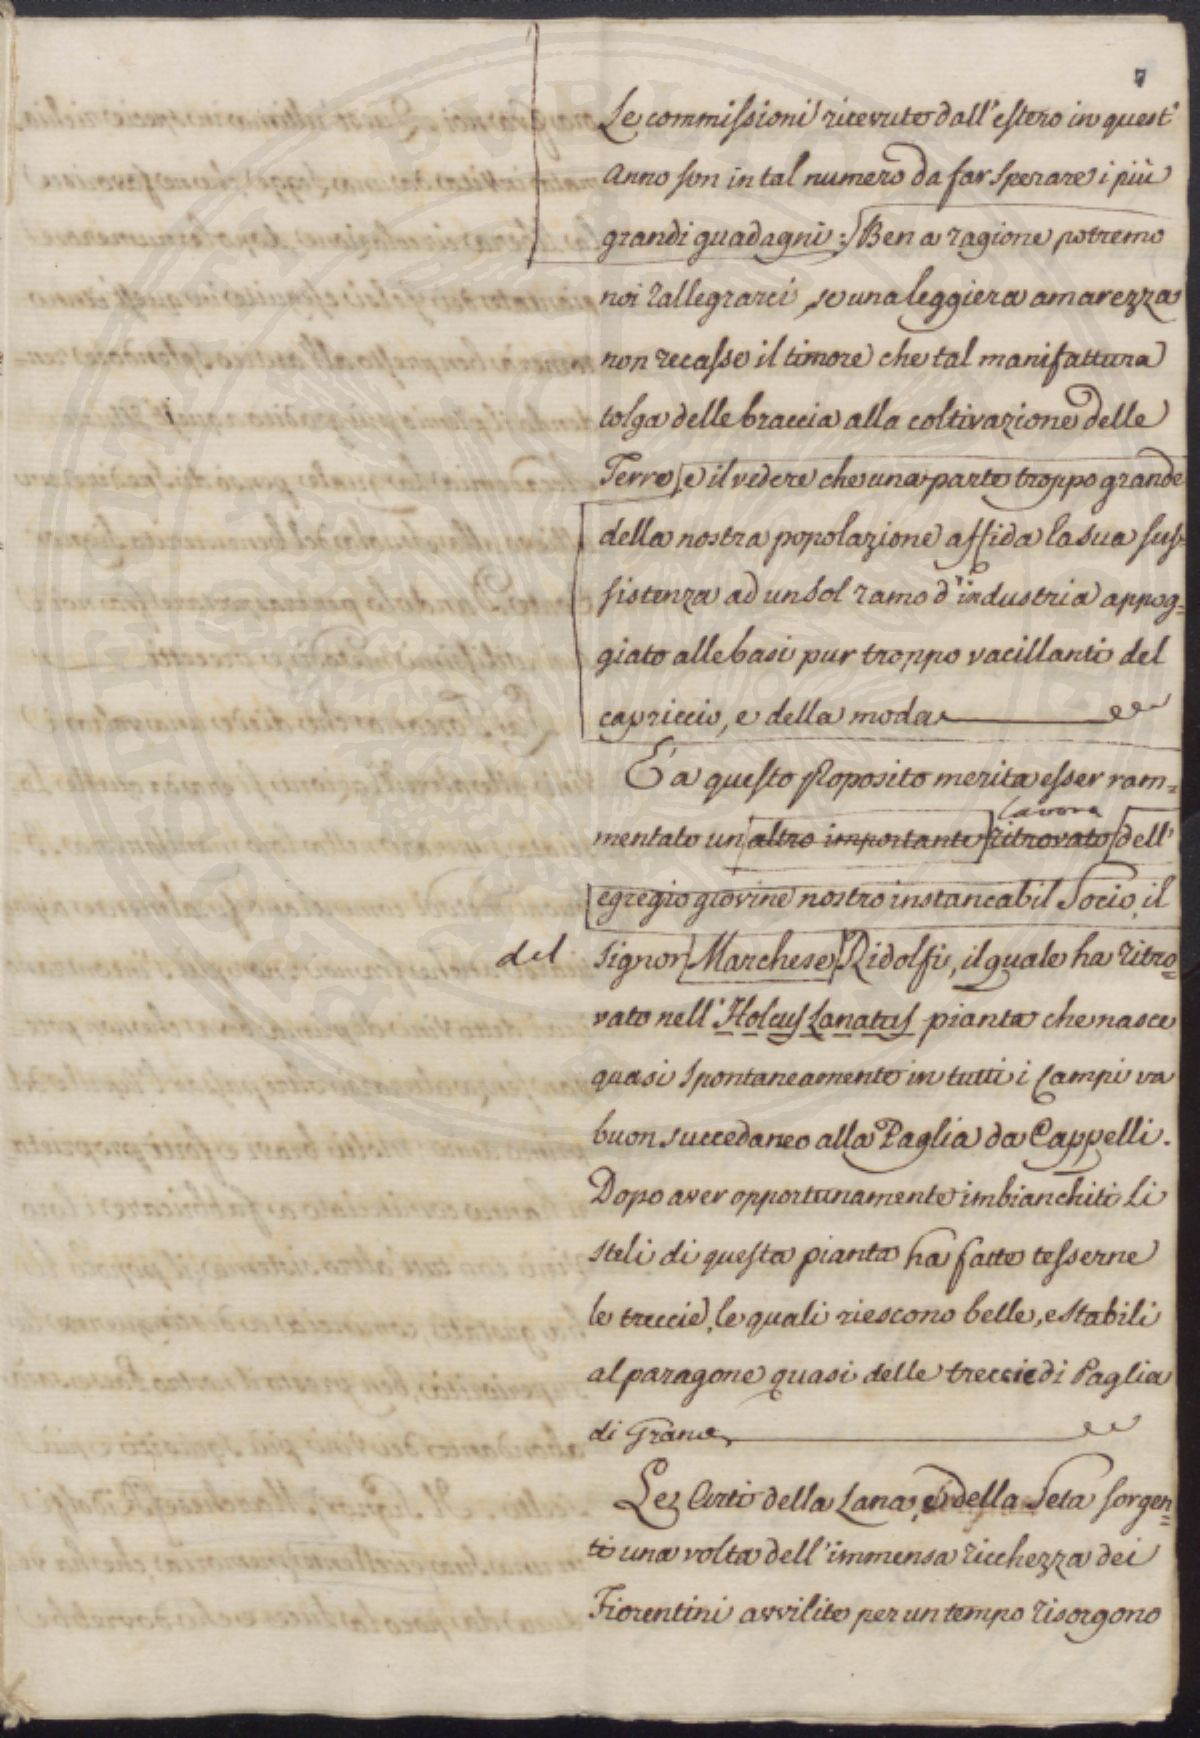 7
Le commissioni ricevute dall'estero in quest'
Anno son in tal numero da far sperare i più
grandi guadagni: Ben a ragione potremo
noi rallegrarci, se una leggiera amarezza
non recasse il timore che tal manifattura
tolga delle braccia alla coltivazione delle
Terre, e il vedere che una parte troppo grande
della nostra popolazione affida la sua sus-
sistenza ad un sol ramo d'industria appog=
giato alle basi pur troppo vacillanti del
capriccio, e della moda
E a questo proposito merita esser ram=
lavoro
mentato un altro importante ritrovato dell'
egregio giovine nostro instancabil Socio, il
del Signor Marchese Ridolfi, il quale ha ritro=
vato nell'Holcus Lanatus pianta che nasce
quasi spontaneamente in tutti i Campi un
buon succedaneo alla Paglia da Cappelli.
Dopo aver opportunamente imbianchiti li
steli di questa pianta ha fatto tesserne
le treccie, le quali riescono belle, e stabili
al paragone quasi delle treccie di Paglia
di Grano
Le Arti della Lana, e della Seta sorgen=
ti una volta dell'immensa ricchezza dei
Fiorentini avvilite per un tempo risorgono